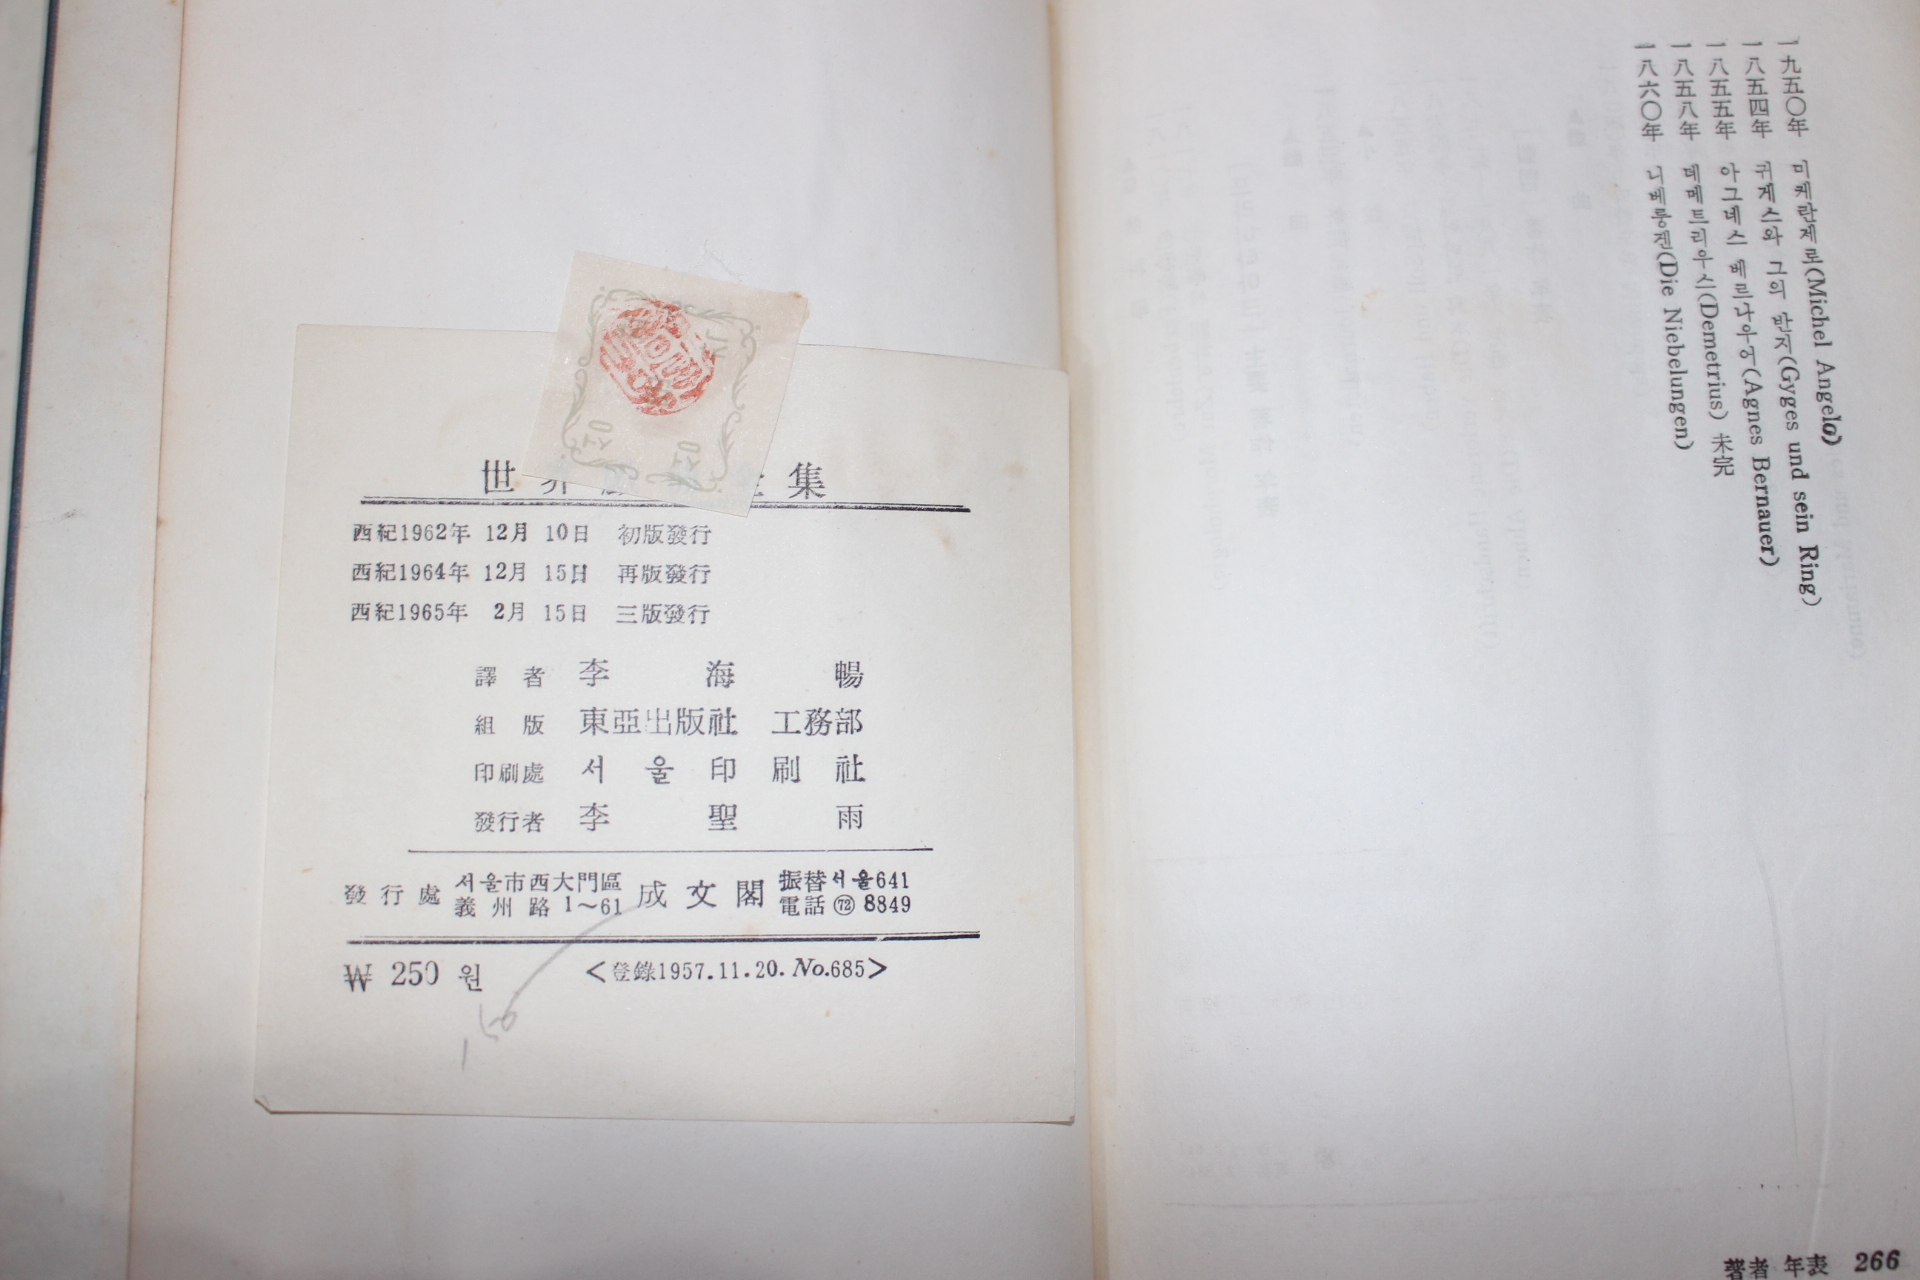 一九五〇年 미케란제로(Michel Angelo)
一八五四年 귀게스와 그의 반지(Gyges und sein Ring)
一八五五年 아그네스 베르나우어(Agnes Bernauer)
一八五八年 데메트리아시(Demetrius) 未完
一八六〇年 니베룽겐(Die Niebelungen)
著者 年表 266
世界 全集
西紀1962年 12月 10日 初版發行
西紀1964年 12月 15日 再版發行
西紀1965年 2月 15日 三版發行
譯者 李海暢
組版 東亞出版社 工務部
印刷處 서울印刷社
發行者 李聖雨
發行處 서울市西大門區 義州路 1~61 成文閣 振替서울641 電話 72 8849
₩ 250 원 <登錄1957.11.20. No.685>
150